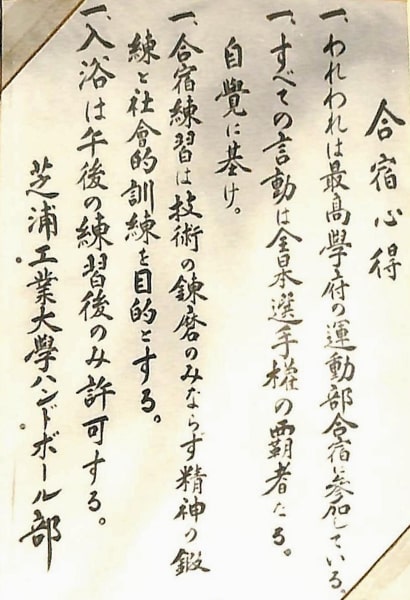 合宿心得
一、われわれは最高學府の運動部合宿に参加している。
一、すべての言動は全日本選手権の覇者たる。
自覺に基け。
一、合宿練習は技術の錬磨のみならず精神の鍛
練と社會的訓練を目的とする。
一、入浴は午後の練習後のみ許可する。
芝浦工業大學ハンドボール部